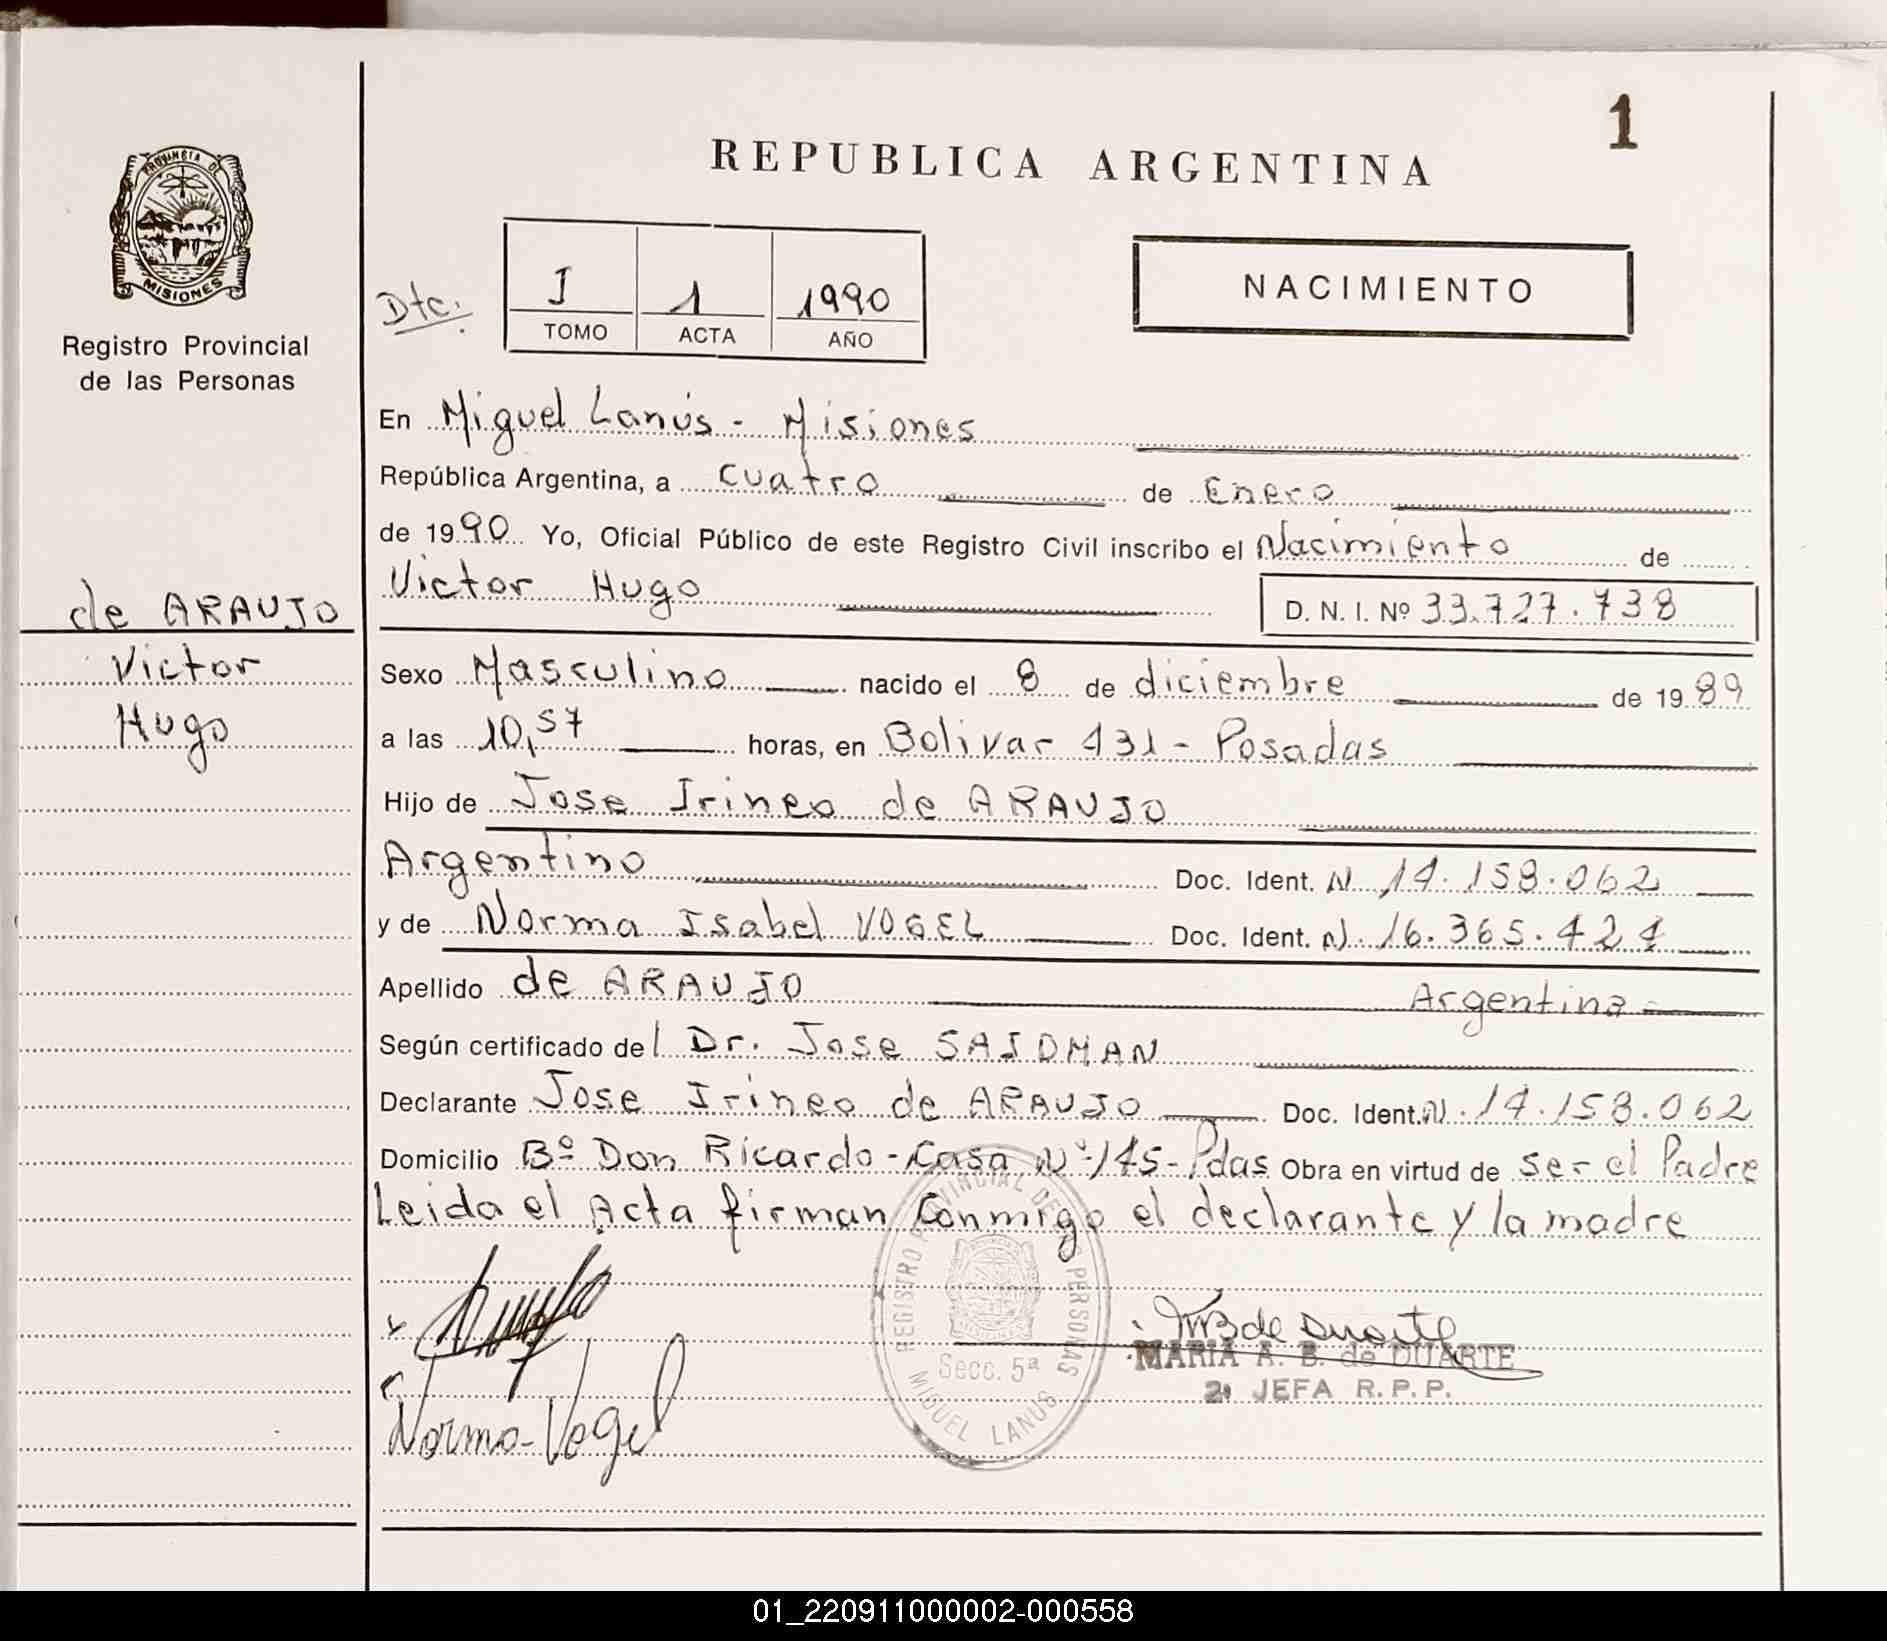 1
REPUBLICA ARGENTINA
PROVINCIA DE
MISIONES
Registro Provincial
de las Personas
Dtc.
I 1 1990
TOMO ACTA AÑO
NACIMIENTO
En Miguel Lanús - Misiones
República Argentina, a cuatro de Enero
de 1990 Yo, Oficial Público de este Registro Civil inscribo el Nacimiento de
Victor Hugo D. N. I. Nº 33.727.738
de ARAUJO
Victor
Hugo
Sexo Masculino nacido el 8 de diciembre de 1989
a las 10,57 horas, en Bolivar 431 - Posadas
Hijo de Jose Irineo de ARAUJO
Argentino Doc. Ident. N 14.158.062
y de Norma Isabel VOGEL Doc. Ident. N. 16.365.424
Apellido de ARAUJO Argentina
Según certificado del Dr. Jose SAIDMAN
Declarante Jose Irineo de ARAUJO Doc. Ident. N. 14.158.062
Domicilio Bº Don Ricardo - Casa Nº 145 - Pdas Obra en virtud de ser el Padre
Leida el Acta firman conmigo el declarante y la madre
REGISTRO PROVINCIAL DE LAS PERSONAS
Secc. 5ª
MIGUEL LANUS
MB de Duarte
MARIA A. B. de DUARTE
2ª JEFA R.P.P.
Norma Vogel
01_220911000002-000558